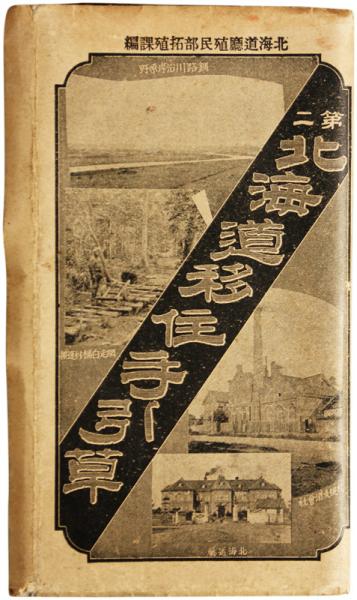 北海道廳殖民部拓殖課編
第二
北海道移住手引草
釧路川沿岸原野
北海道廳